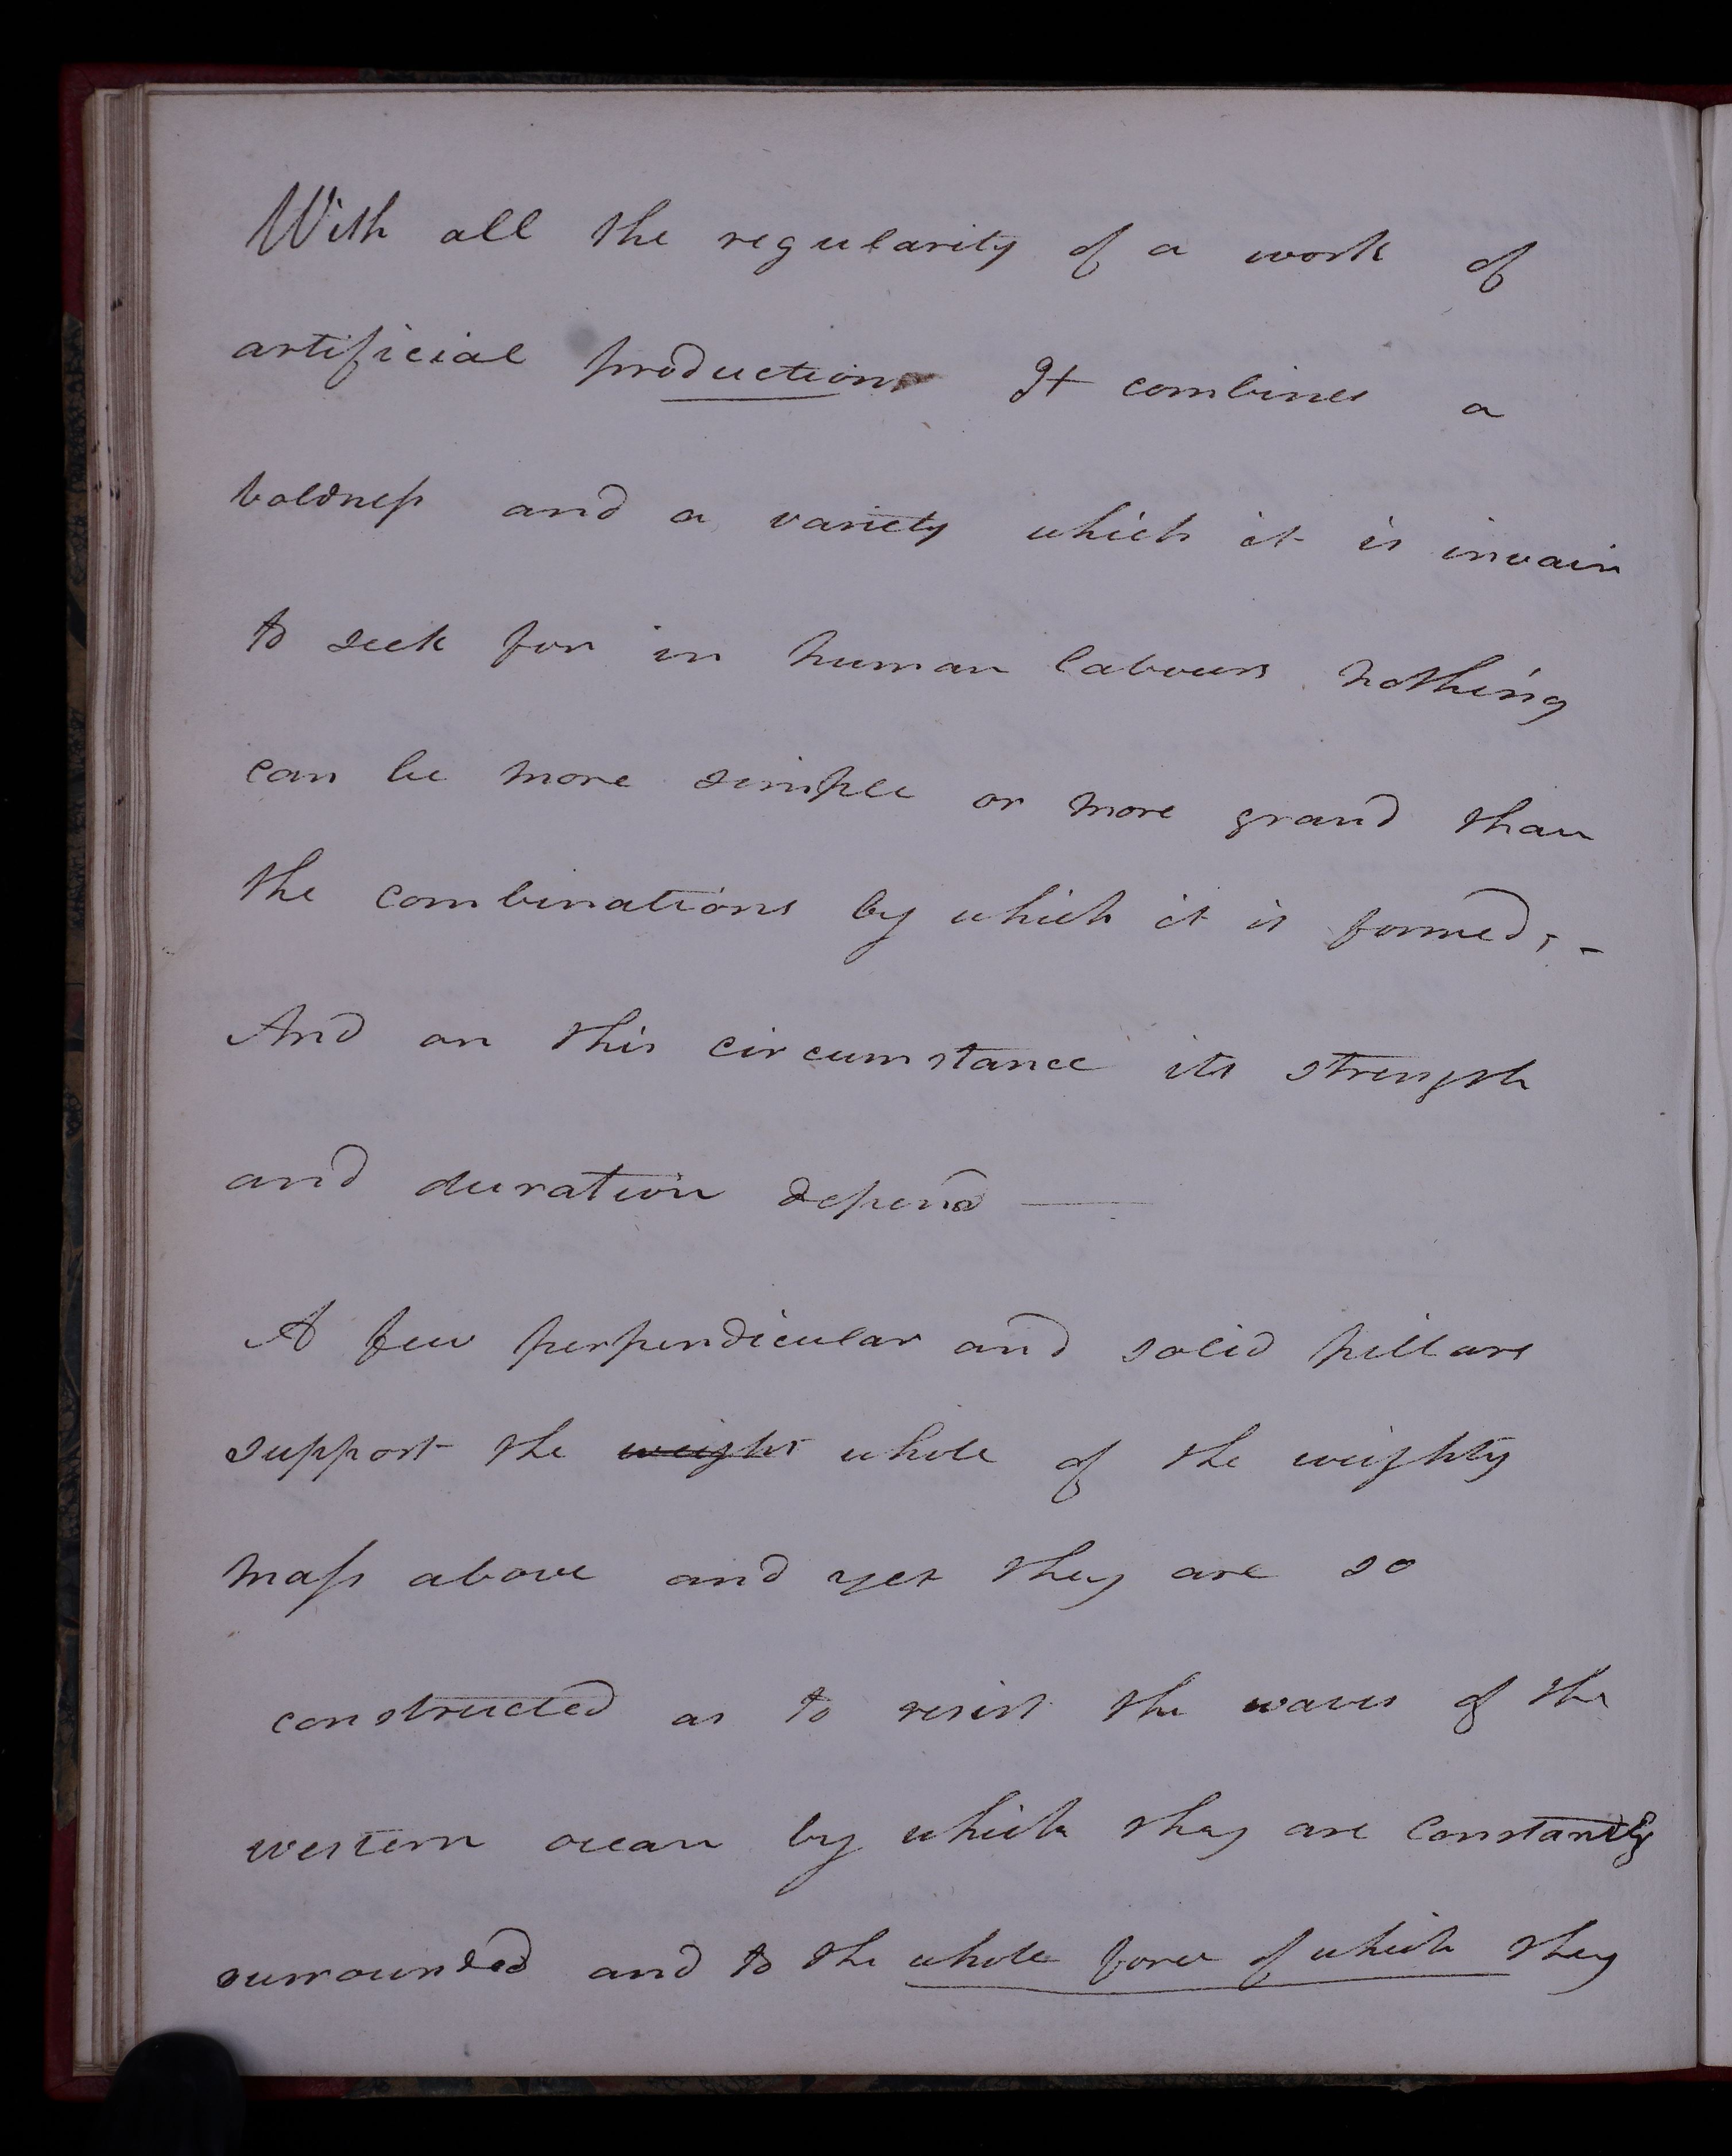 With all the regularity of a work of
artificial production It combines a
boldness and a variety which it is invain
to seek for in human labours nothing
can be more simple or more grand than
the combinations by which it is formed, -
And on this circumstance its strength
and duration depend —
A few perpendicular and solid pillars
support the weight whole of the weighty
mass above and yet they are so
constructed as to resist the waves of the
western ocean by which they are constantly
surrounded and to the whole force of which they